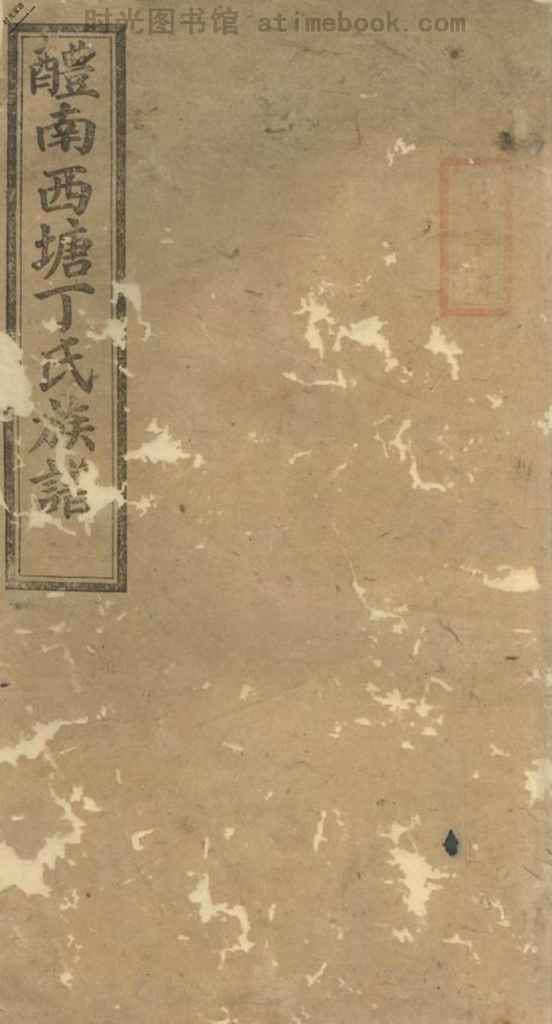 时光图书馆 - atimebook.com
醴南西塘丁氏族譜